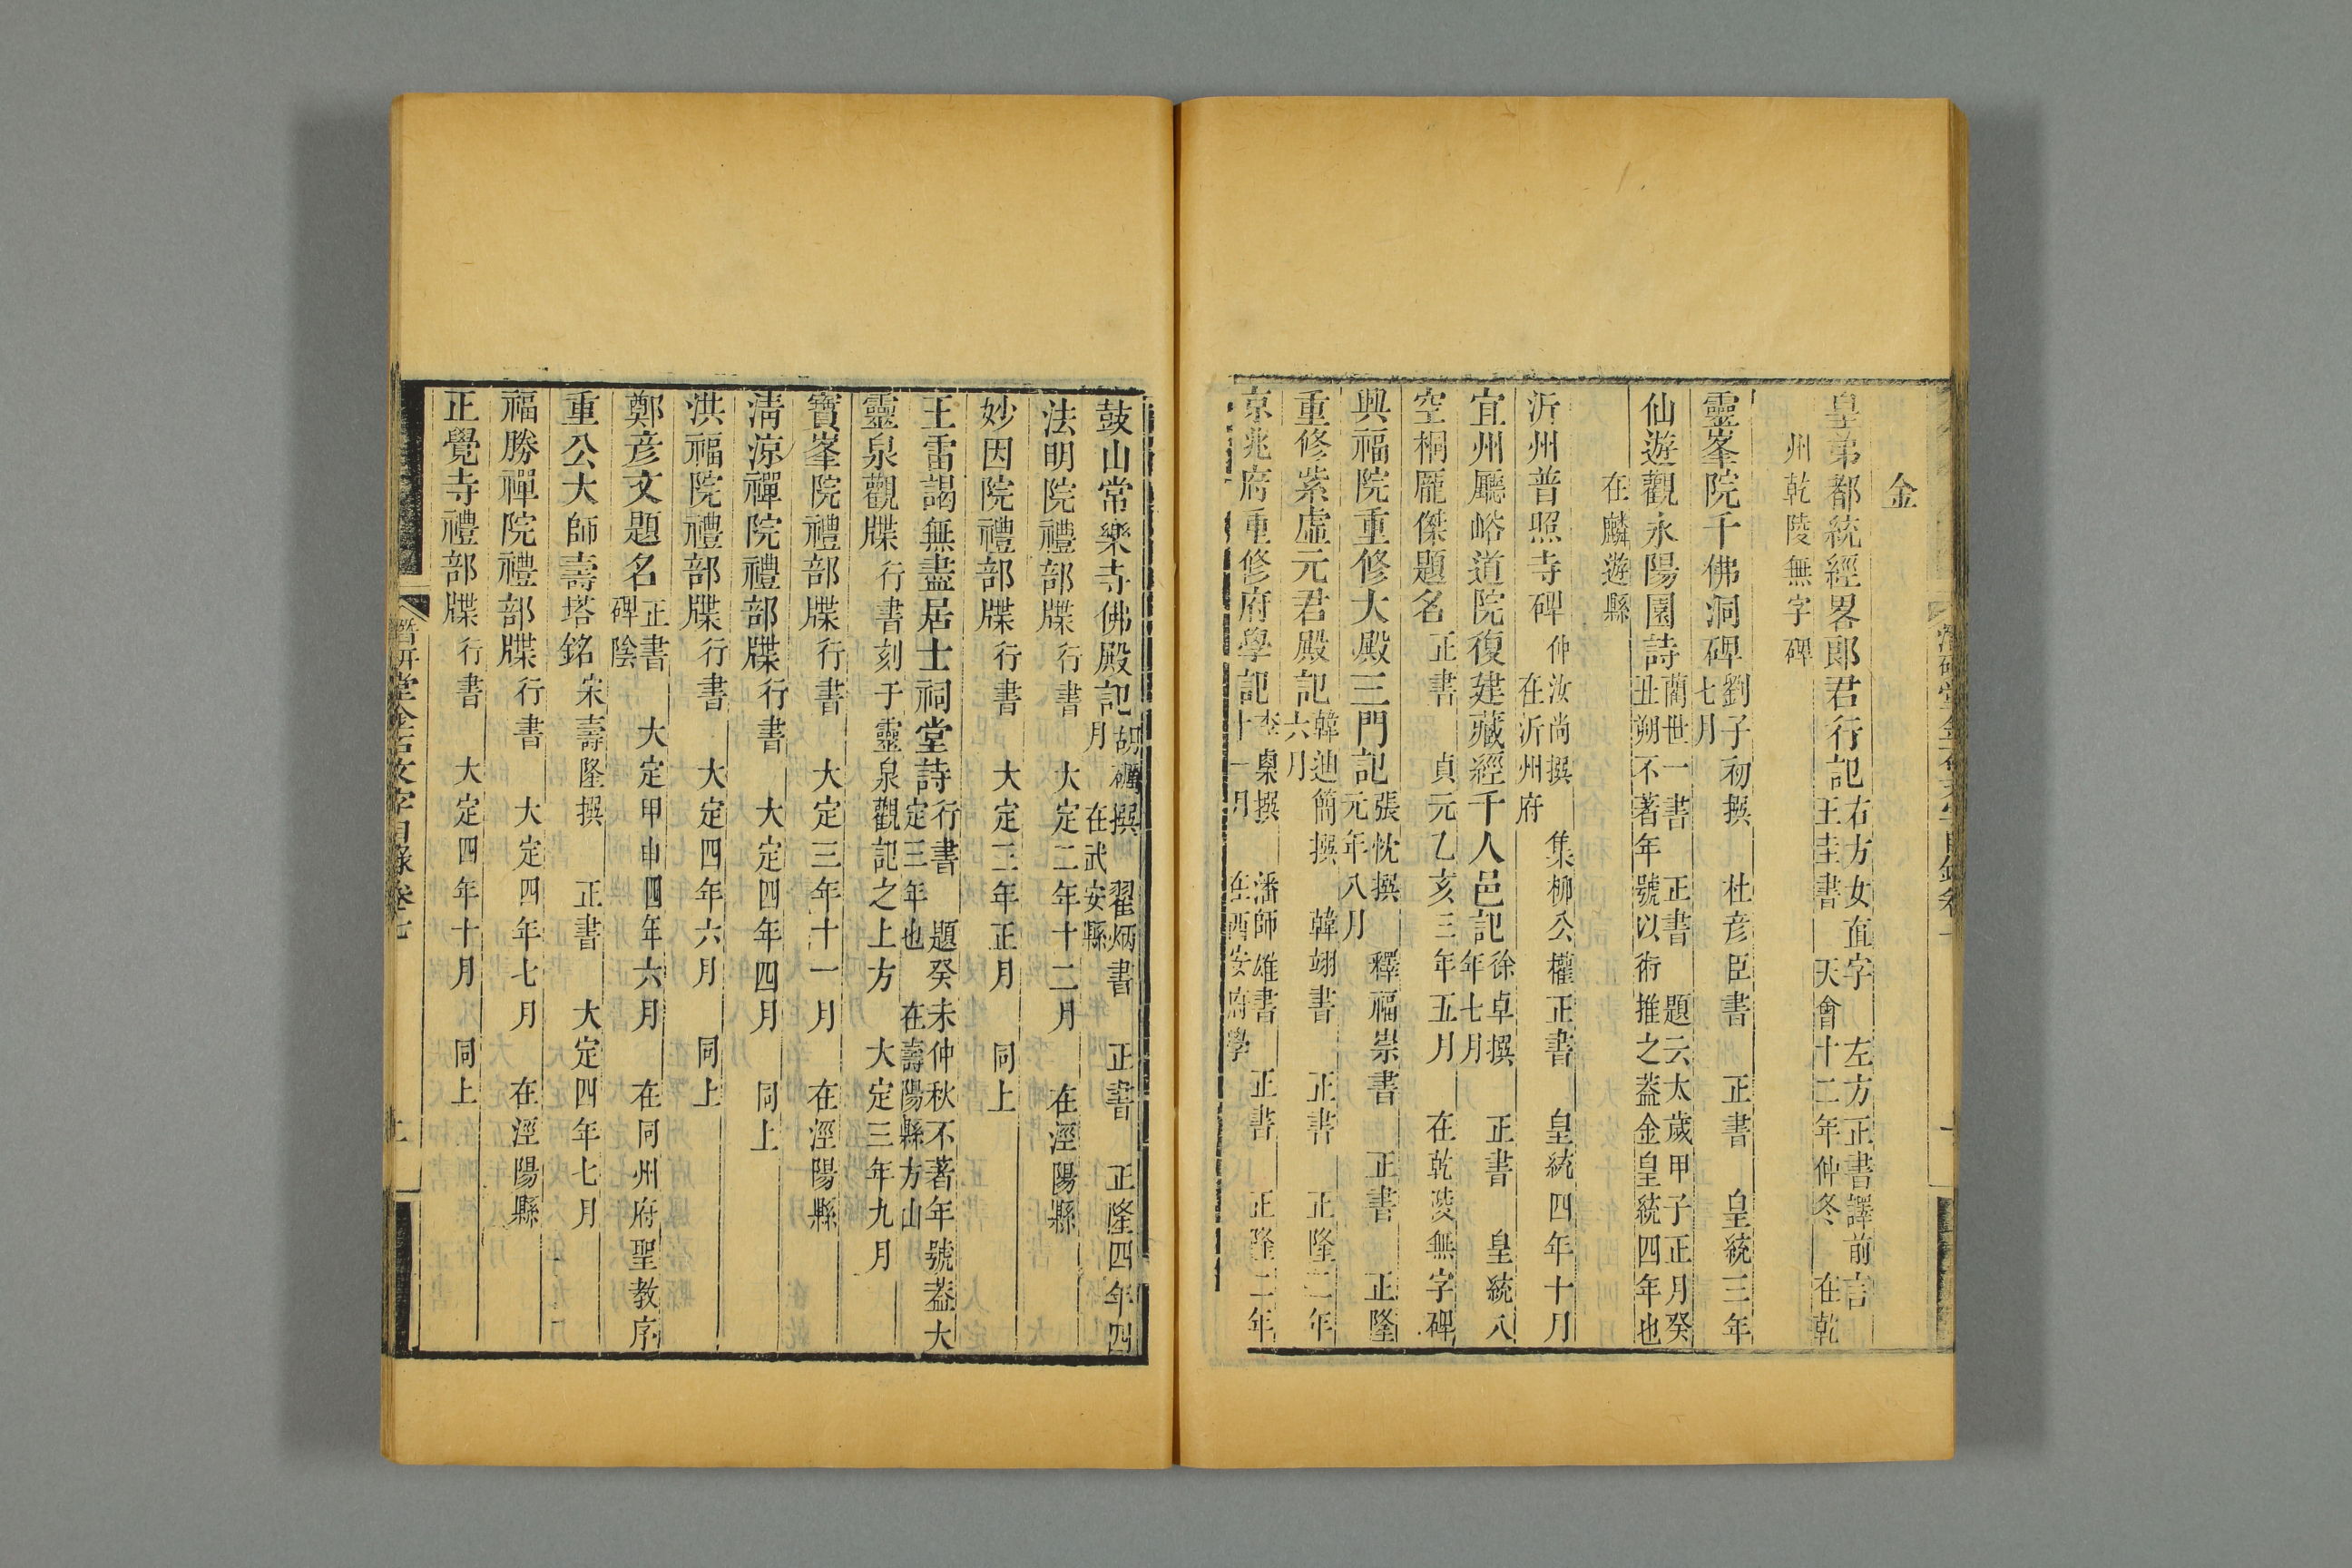 金
皇弟都統經畧郎君行記右方女直字 左方正書譯前言
王圭書 天會十二年仲冬 在乾
州乾陵無字碑
靈峯院千佛洞碑劉子初撰 杜彦臣書 正書 皇統三年
七月
仙遊觀永陽園詩藺世一書 正書 題云太歲甲子正月癸
丑朔不著年號以術推之葢金皇統四年也
在麟遊縣
沂州普照寺碑仲汝尚撰 集柳公權正書 皇統四年十月
在沂州府
宜州廳峪道院復建藏經千人邑記徐卓撰 正書 皇統八
年七月
空桐龎傑題名正書 貞元乙亥三年五月 在乾陵無字碑
興福院重修大殿三門記張忱撰 釋福崇書 正書 正隆
元年八月
重修紫虛元君殿記韓迪簡撰 韓翊書 正書 正隆二年
六月
京兆府重修府學記李㮚撰 潘師雄書 正書 正隆二年
十一月 在西安府學
鼓山常樂寺佛殿記胡礪撰 翟炳書 正書 正隆四年四
月 在武安縣
法明院禮部牒行書 大定二年十二月 在涇陽縣
妙因院禮部牒行書 大定三年正月 同上
王雷謁無盡居士祠堂詩行書 題癸未仲秋不著年號葢大
定三年也 在壽陽縣方山
靈泉觀牒行書刻于靈泉觀記之上方 大定三年九月
寶峯院禮部牒行書 大定三年十一月 在涇陽縣
淸涼禪院禮部牒行書 大定四年四月 同上
洪福院禮部牒行書 大定四年六月 同上
鄭彦文題名正書 大定甲申四年六月 在同州府聖教序
碑陰
重公大師壽塔銘宋壽隆撰 正書 大定四年七月
福勝禪院禮部牒行書 大定四年七月 在涇陽縣
正覺寺禮部牒行書 大定四年十月 同上
潛研堂金石文字目錄卷七